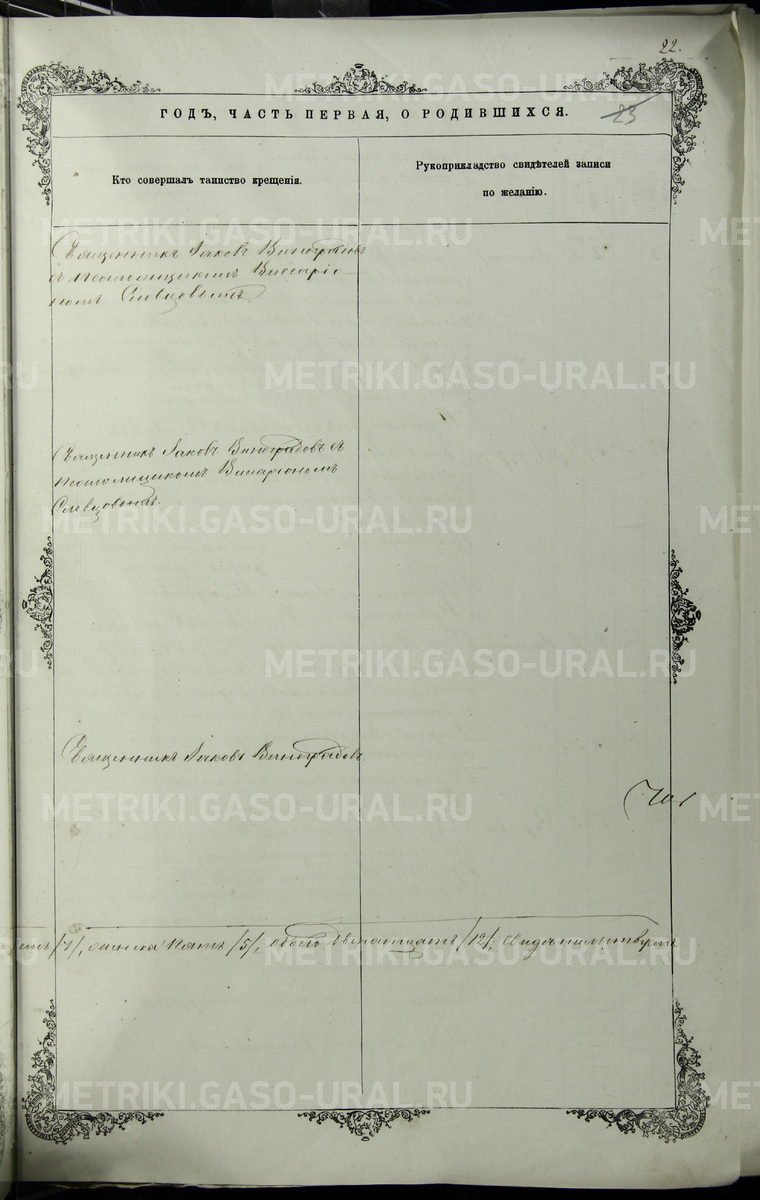 22.
23
ГОДЪ, ЧАСТЬ ПЕРВАЯ, О РОДИВШИХСЯ.
Кто совершалъ таинство крещенія.
Рукоприкладство свидѣтелей записи
по желанію.
Священникъ Іаковъ Виноградовъ
съ Псаломщикомъ Виссаріо-
номъ Словцовымъ.
Священникъ Іаковъ Виноградовъ съ
Псаломщикомъ
Словцовымъ.
Священникъ Іаковъ Виноградовъ
/7/, женска пять /5/, обоего двенадцать /12/,
METRIKI.GASO-URAL.RU